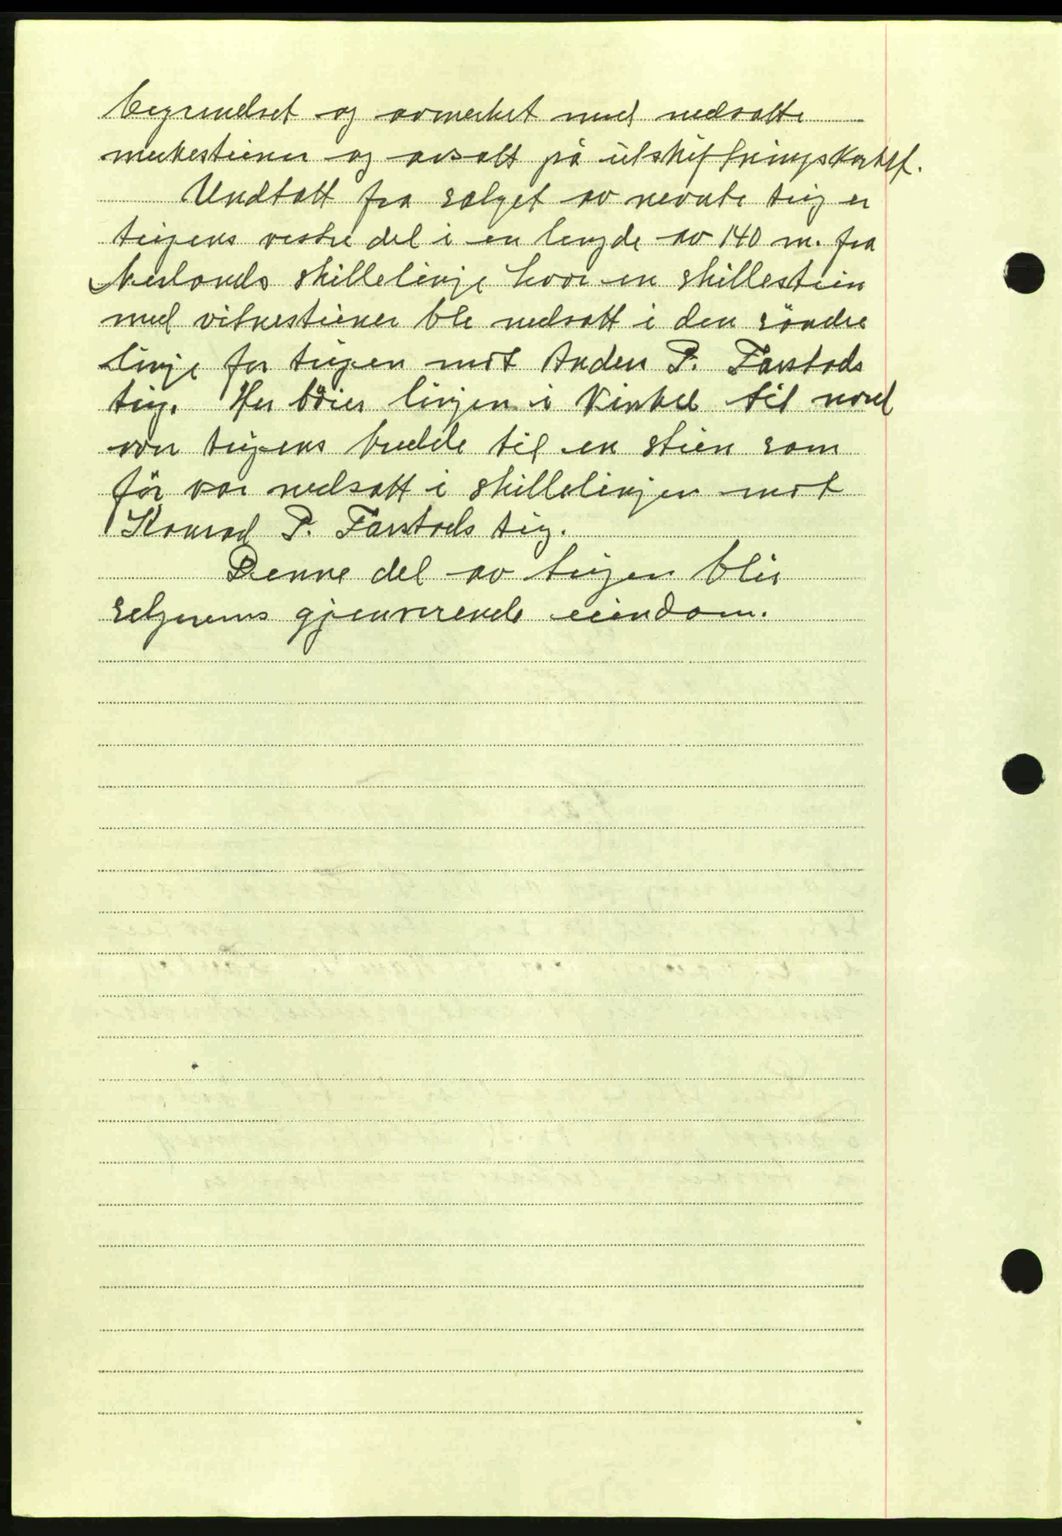 begrendset og avmerket med nedsatte
merkesteiner og avsatt på utskiftningskartet.
Undtatt fra salget av nevnte teig er
teigens vestre del i en lengde av 140 m. fra
skillelinje hvor en skillestein
med vitnesteiner ble nedsatt i den söndre
linje for teigen mot Anders P. Farstads
teig. Her böier linjen i vinkel til nord
over teigens bredde til en stein som
för var nedsatt i skillelinjen mot
Konrad P. Farstads teig.
Denne del av teigen blir
selgerens gjenverende eiendom.